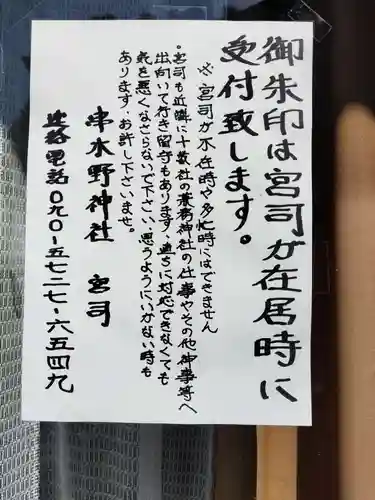 御朱印は宮司が在居時に
受付致します。
※宮司が不在時や多忙時にはできません
。宮司も近隣に十数社の兼務神社の仕事やその他神事等へ
出向いて行き留守もあります、直ちに対応できなくても
気を悪くなさらないで下さい、思うようにいかない時も
あります、お許し下さいませ。
串木野神社 宮司
連絡電話〇九〇-五七二七-六五四九